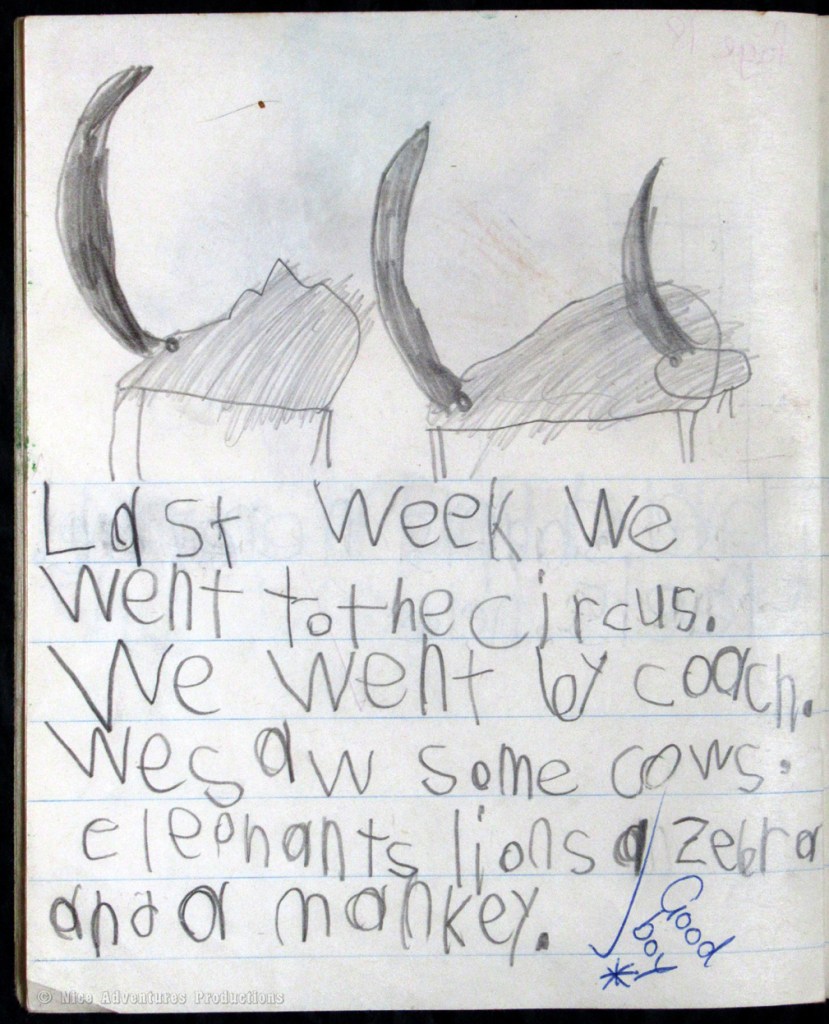 Last Week We
Went to the circus.
We Went by coach.
We saw some cows.
elephants lions a zebra
and a mankey.
Good
boy
© Nice Adventures Productions